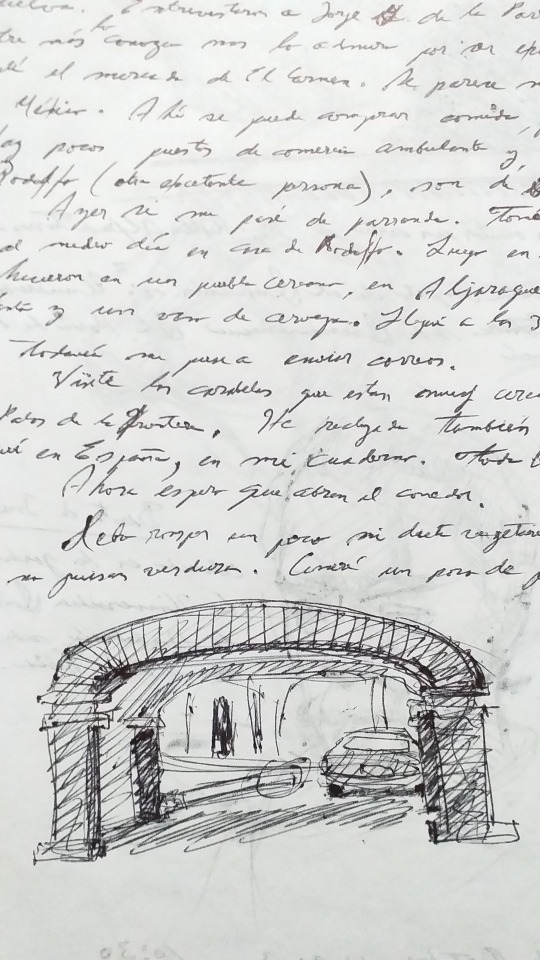 Entrevistaron a Jorge de la Par
más lo conozco más lo admiro por ser
el mercado de El Carmen. Me parece
México. Ahí se puede comprar comida,
pocos puestos de comercio ambulante y,
Rodolfo (otra excelente persona), son de
Ayer si me pasé de parranda. Tomé
al medio día en casa de Rodolfo. Luego en
hicieron en un pueblo cercano, en Aljaraque
y un vaso de cerveza. Llegué a las 3
Todavía me puse a enviar correos.
Visité las carabelas que están muy cerca
Palos de la Frontera. He también
en España, en mi cuaderno.
Ahora espero que abran el comedor.
Debo romper un poco mi dieta vegetari
no puras verduras. Comeré un poco de p